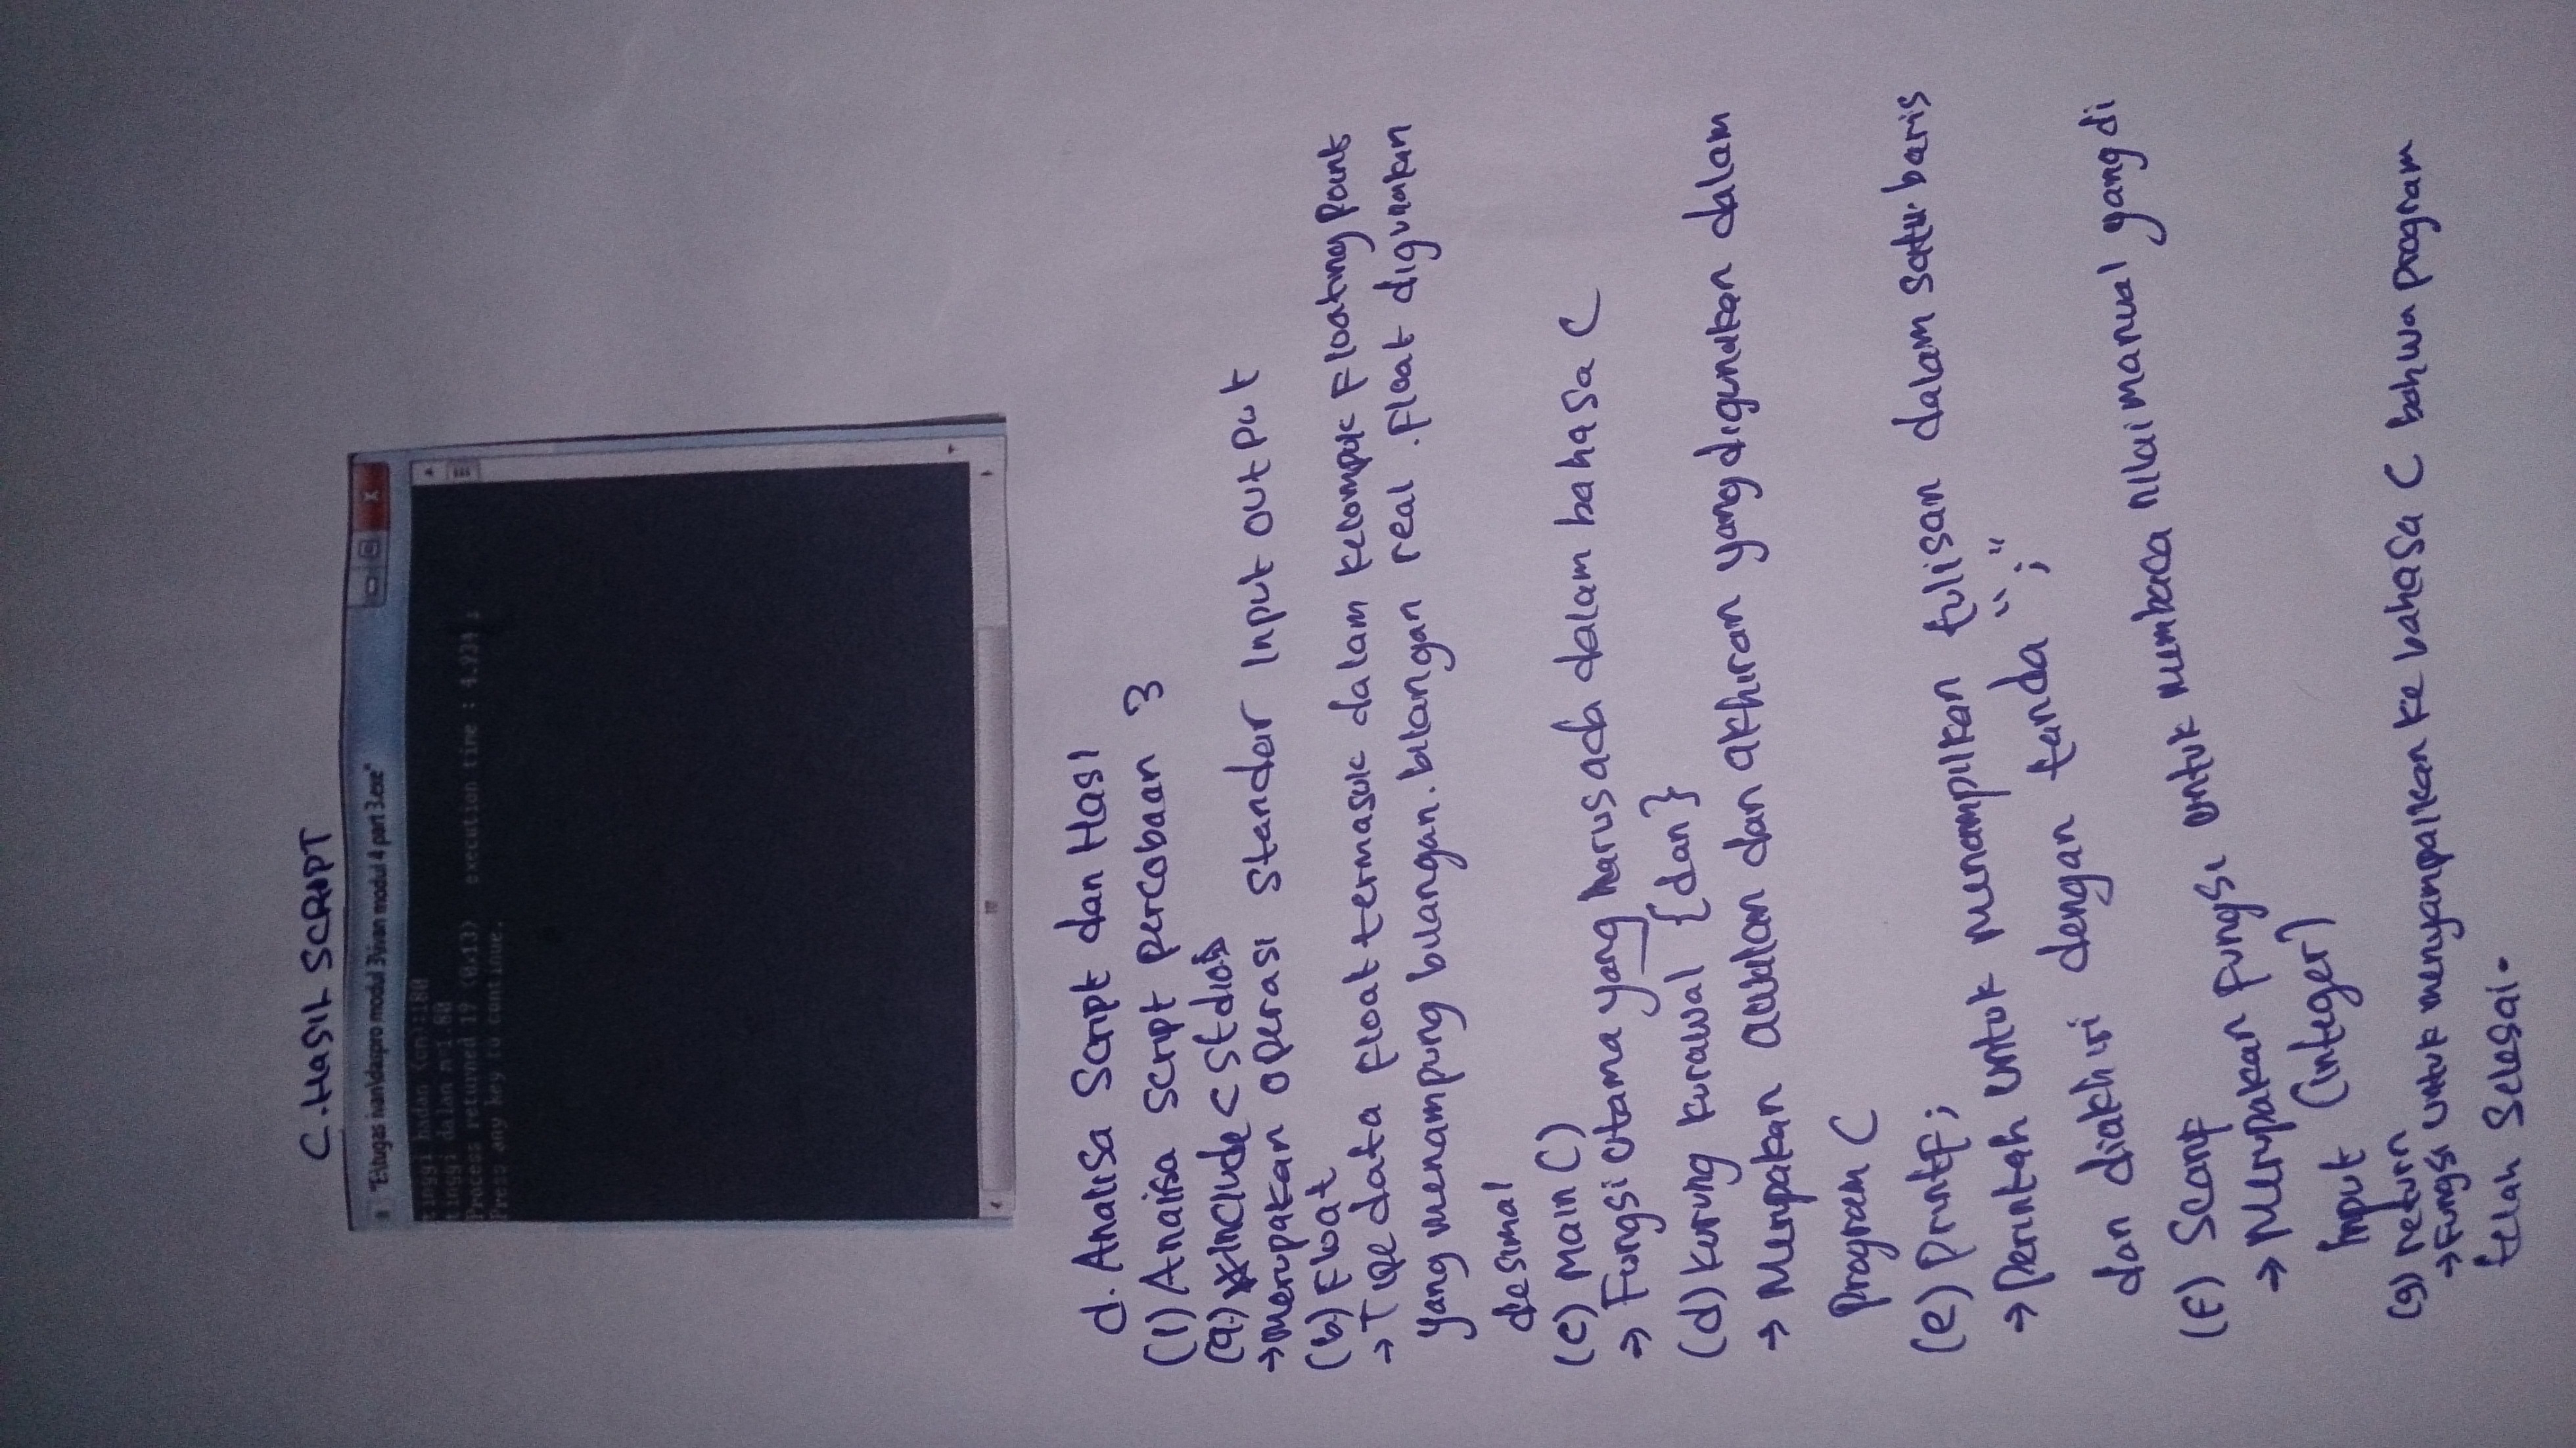 C. HASIL SCRIPT
"E:\tugas ivan\daspro modul 3\ivan modul 4 part 3.exe"
tinggi badan (cm):180
tinggi dalam m=1.80
Process returned 19 (0x13) execution time : 4.931 s
Press any key to continue.
d. Analisa Script dan Hasil
(1) Analisa script percobaan 3
(a) #include <stdio>
→ merupakan operasi standar input output
(b) Float
→ Tipe data float termasuk dalam kelompok Floating Point
yang menampung bilangan. bilangan real. Float digunakan
desimal
(c) Main ()
→ Fungsi utama yang harus ada dalam bahasa C
(d) kurung kurawal { dan }
→ Merupakan awalan dan akhiran yang digunakan dalam
Program C
(e) Printf;
→ Perintah untuk menampilkan tulisan dalam satu baris
dan diakhiri dengan tanda ";"
(f) Scanf
→ Merupakan fungsi untuk membaca nilai manual yang di
input (integer)
(g) return
→ Fungsi untuk menyampaikan ke bahasa C bahwa program
telah selesai.